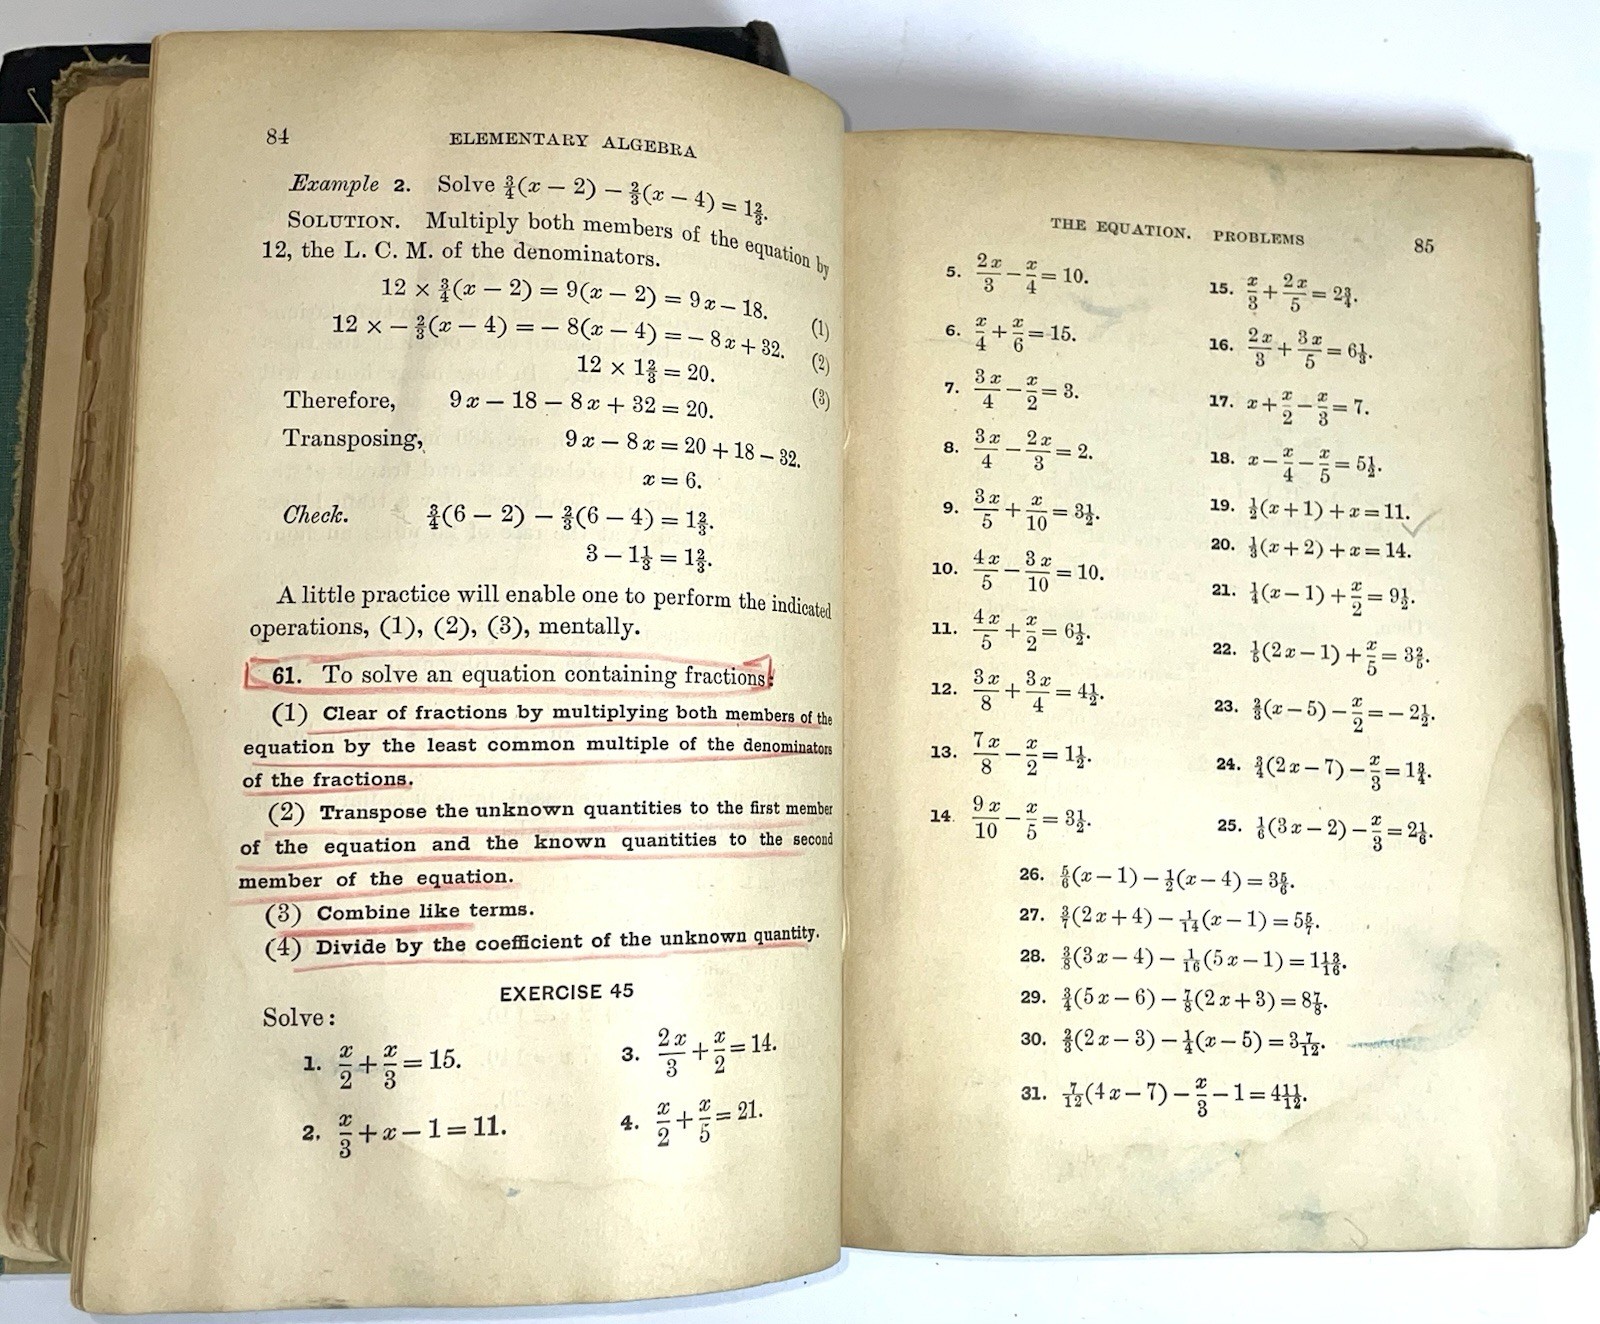 84 ELEMENTARY ALGEBRA
Example 2. Solve ¾(x − 2) − ⅔(x − 4) = 1⅔.
SOLUTION. Multiply both members of the equation by
12, the L. C. M. of the denominators.
12 × ¾(x − 2) = 9(x − 2) = 9x − 18. (1)
12 × − ⅔(x − 4) = − 8(x − 4) = − 8x + 32. (2)
12 × 1⅔ = 20. (3)
Therefore, 9x − 18 − 8x + 32 = 20.
Transposing, 9x − 8x = 20 + 18 − 32.
x = 6.
Check. ¾(6 − 2) − ⅔(6 − 4) = 1⅔.
3 − 1⅓ = 1⅔.
A little practice will enable one to perform the indicated
operations, (1), (2), (3), mentally.
61. To solve an equation containing fractions:
(1) Clear of fractions by multiplying both members of the
equation by the least common multiple of the denominators
of the fractions.
(2) Transpose the unknown quantities to the first member
of the equation and the known quantities to the second
member of the equation.
(3) Combine like terms.
(4) Divide by the coefficient of the unknown quantity.
EXERCISE 45
Solve:
1. x/2 + x/3 = 15.
2. x/3 + x − 1 = 11.
3. 2x/3 + x/2 = 14.
4. x/2 + x/5 = 21.
THE EQUATION. PROBLEMS 85
5. 2x/3 − x/4 = 10.
6. x/4 + x/6 = 15.
7. 3x/4 − x/2 = 3.
8. 3x/4 − 2x/3 = 2.
9. 3x/5 + x/10 = 3½.
10. 4x/5 − 3x/10 = 10.
11. 4x/5 + x/2 = 6½.
12. 3x/8 + 3x/4 = 4½.
13. 7x/8 − x/2 = 1½.
14. 9x/10 − x/5 = 3½.
15. x/3 + 2x/5 = 2¾.
16. 2x/3 + 3x/5 = 6⅓.
17. x + x/2 − x/3 = 7.
18. x − x/4 − x/5 = 5½.
19. ½(x + 1) + x = 11.
20. ⅓(x + 2) + x = 14.
21. ¼(x − 1) + x/2 = 9½.
22. ⅕(2x − 1) + x/5 = 3⅖.
23. ⅔(x − 5) − x/2 = − 2½.
24. ¾(2x − 7) − x/3 = 1¾.
25. ⅙(3x − 2) − x/3 = 2⅙.
26. ⅚(x − 1) − ½(x − 4) = 3⅚.
27. 3/7(2x + 4) − 1/14(x − 1) = 5 5/7.
28. ⅜(3x − 4) − 1/16(5x − 1) = 1 13/16.
29. ¾(5x − 6) − ⅞(2x + 3) = 8⅞.
30. ⅔(2x − 3) − ¼(x − 5) = 3 7/12.
31. 7/12(4x − 7) − x/3 − 1 = 4 11/12.